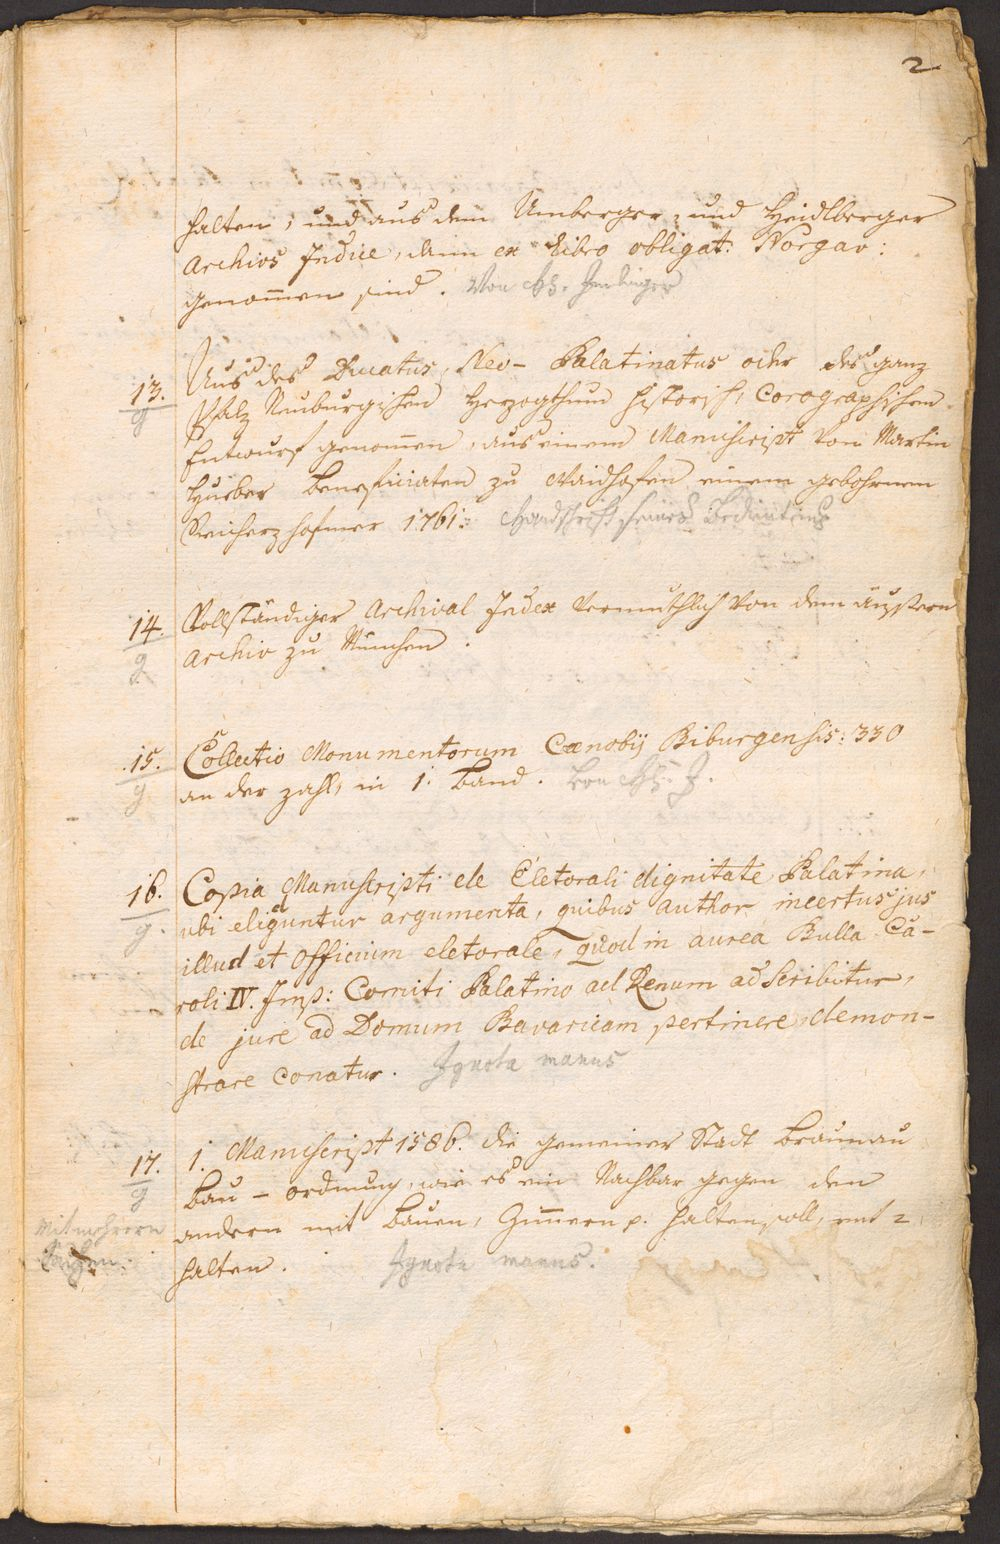 2
halten, und aus dem Amberger- und Heidlberger
Archivs Indice, dann ex Libro obligat: Norgav:
genom̄en sind. Von
13. Aus des Ducatus Neo-Palatinatus oder des ganz
g
Pfalz Neuburgischen Herzogthum historisch, Corographischen
Entwurf genom̄en, aus einem Manuscript von Martin
Hueber Beneficiaten zu Waidhofen einem gebohrnen
Reicherzhofener 1761: Handschrift seines
14. Vollständiger Archival Index vermuthlich von dem äussern
g
Archiv zu München.
15. Collectio Monumentorum Cœnobij Biburgensis: 330
g
an der zahl, in 1. Band. Von
16. Copia Manuscripti de Eletorali dignitate Palatina,
ubi eliguntur argumenta, quibus author incertus jus
g.
illud et officium eletorale, quod in aurea Bulla Ca-
roli IV. Imp: Comiti Palatino ad Renum adscribitur,
de jure ad Domum Bavaricam pertinere demon-
strare conatur. Ignota manus
17. 1. Manuscript 1586. die gemeiner Stadt Braunau
g
Bau-ordnung, wie es ein Nachbar gegen den
Mit mehrern
andern mit Bauen, Zim̄ern p. halten soll, ent-
halten. Ignota manus.